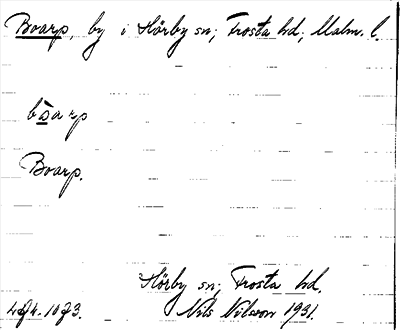 Boarp, by i Hörby sn; Frosta hd; Malm. l.
Boarp.
Hörby sn; Frosta hd.
Nils Nilsson 1931.